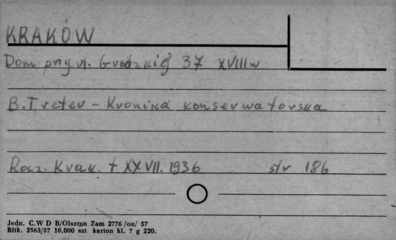 KRAKÓW
Dom przy ul. Grodzkiej 37 XVIII w
B. Treter - Kronika konserwatorska
Rocz. Krak. t XXVII. 1936 str 186
Jedn. C.W D B/Olsztyn Zam 2776 /on/ 57
Bitk. 2563/57 10.000 szt karton kl. 7 g 220.